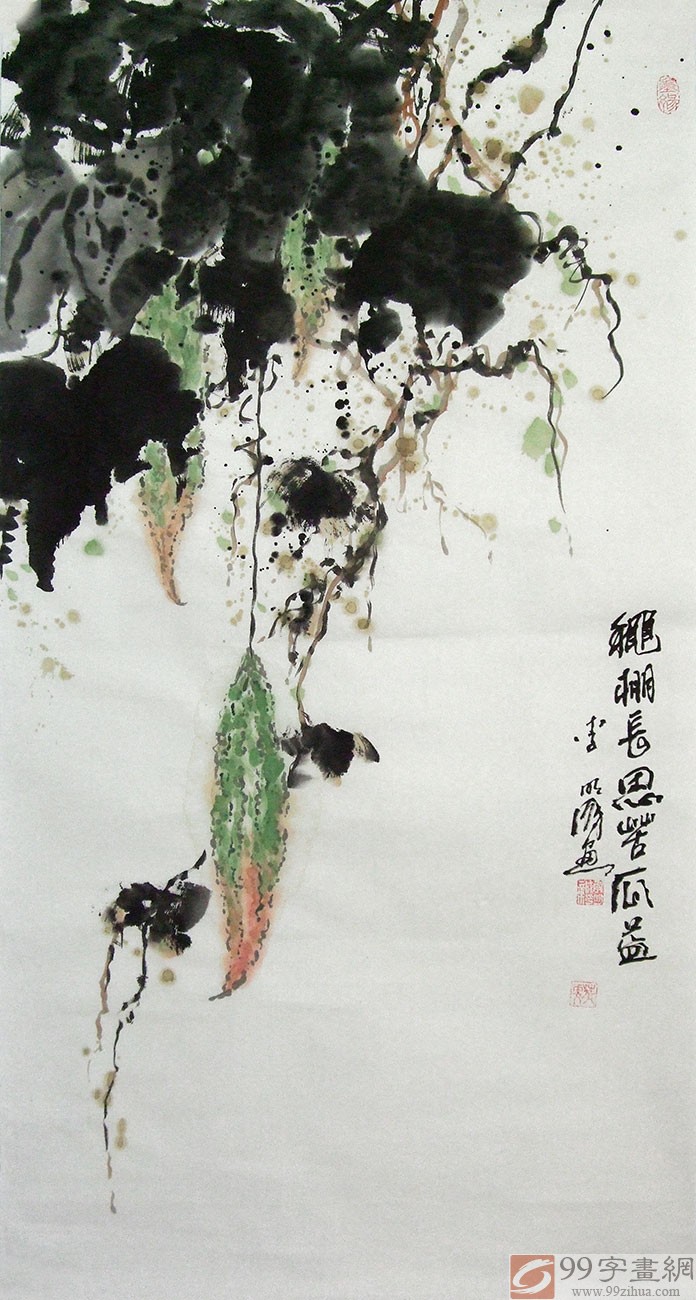 繩棚長思苦瓜益
李明
99字畫網
www.99zihua.com